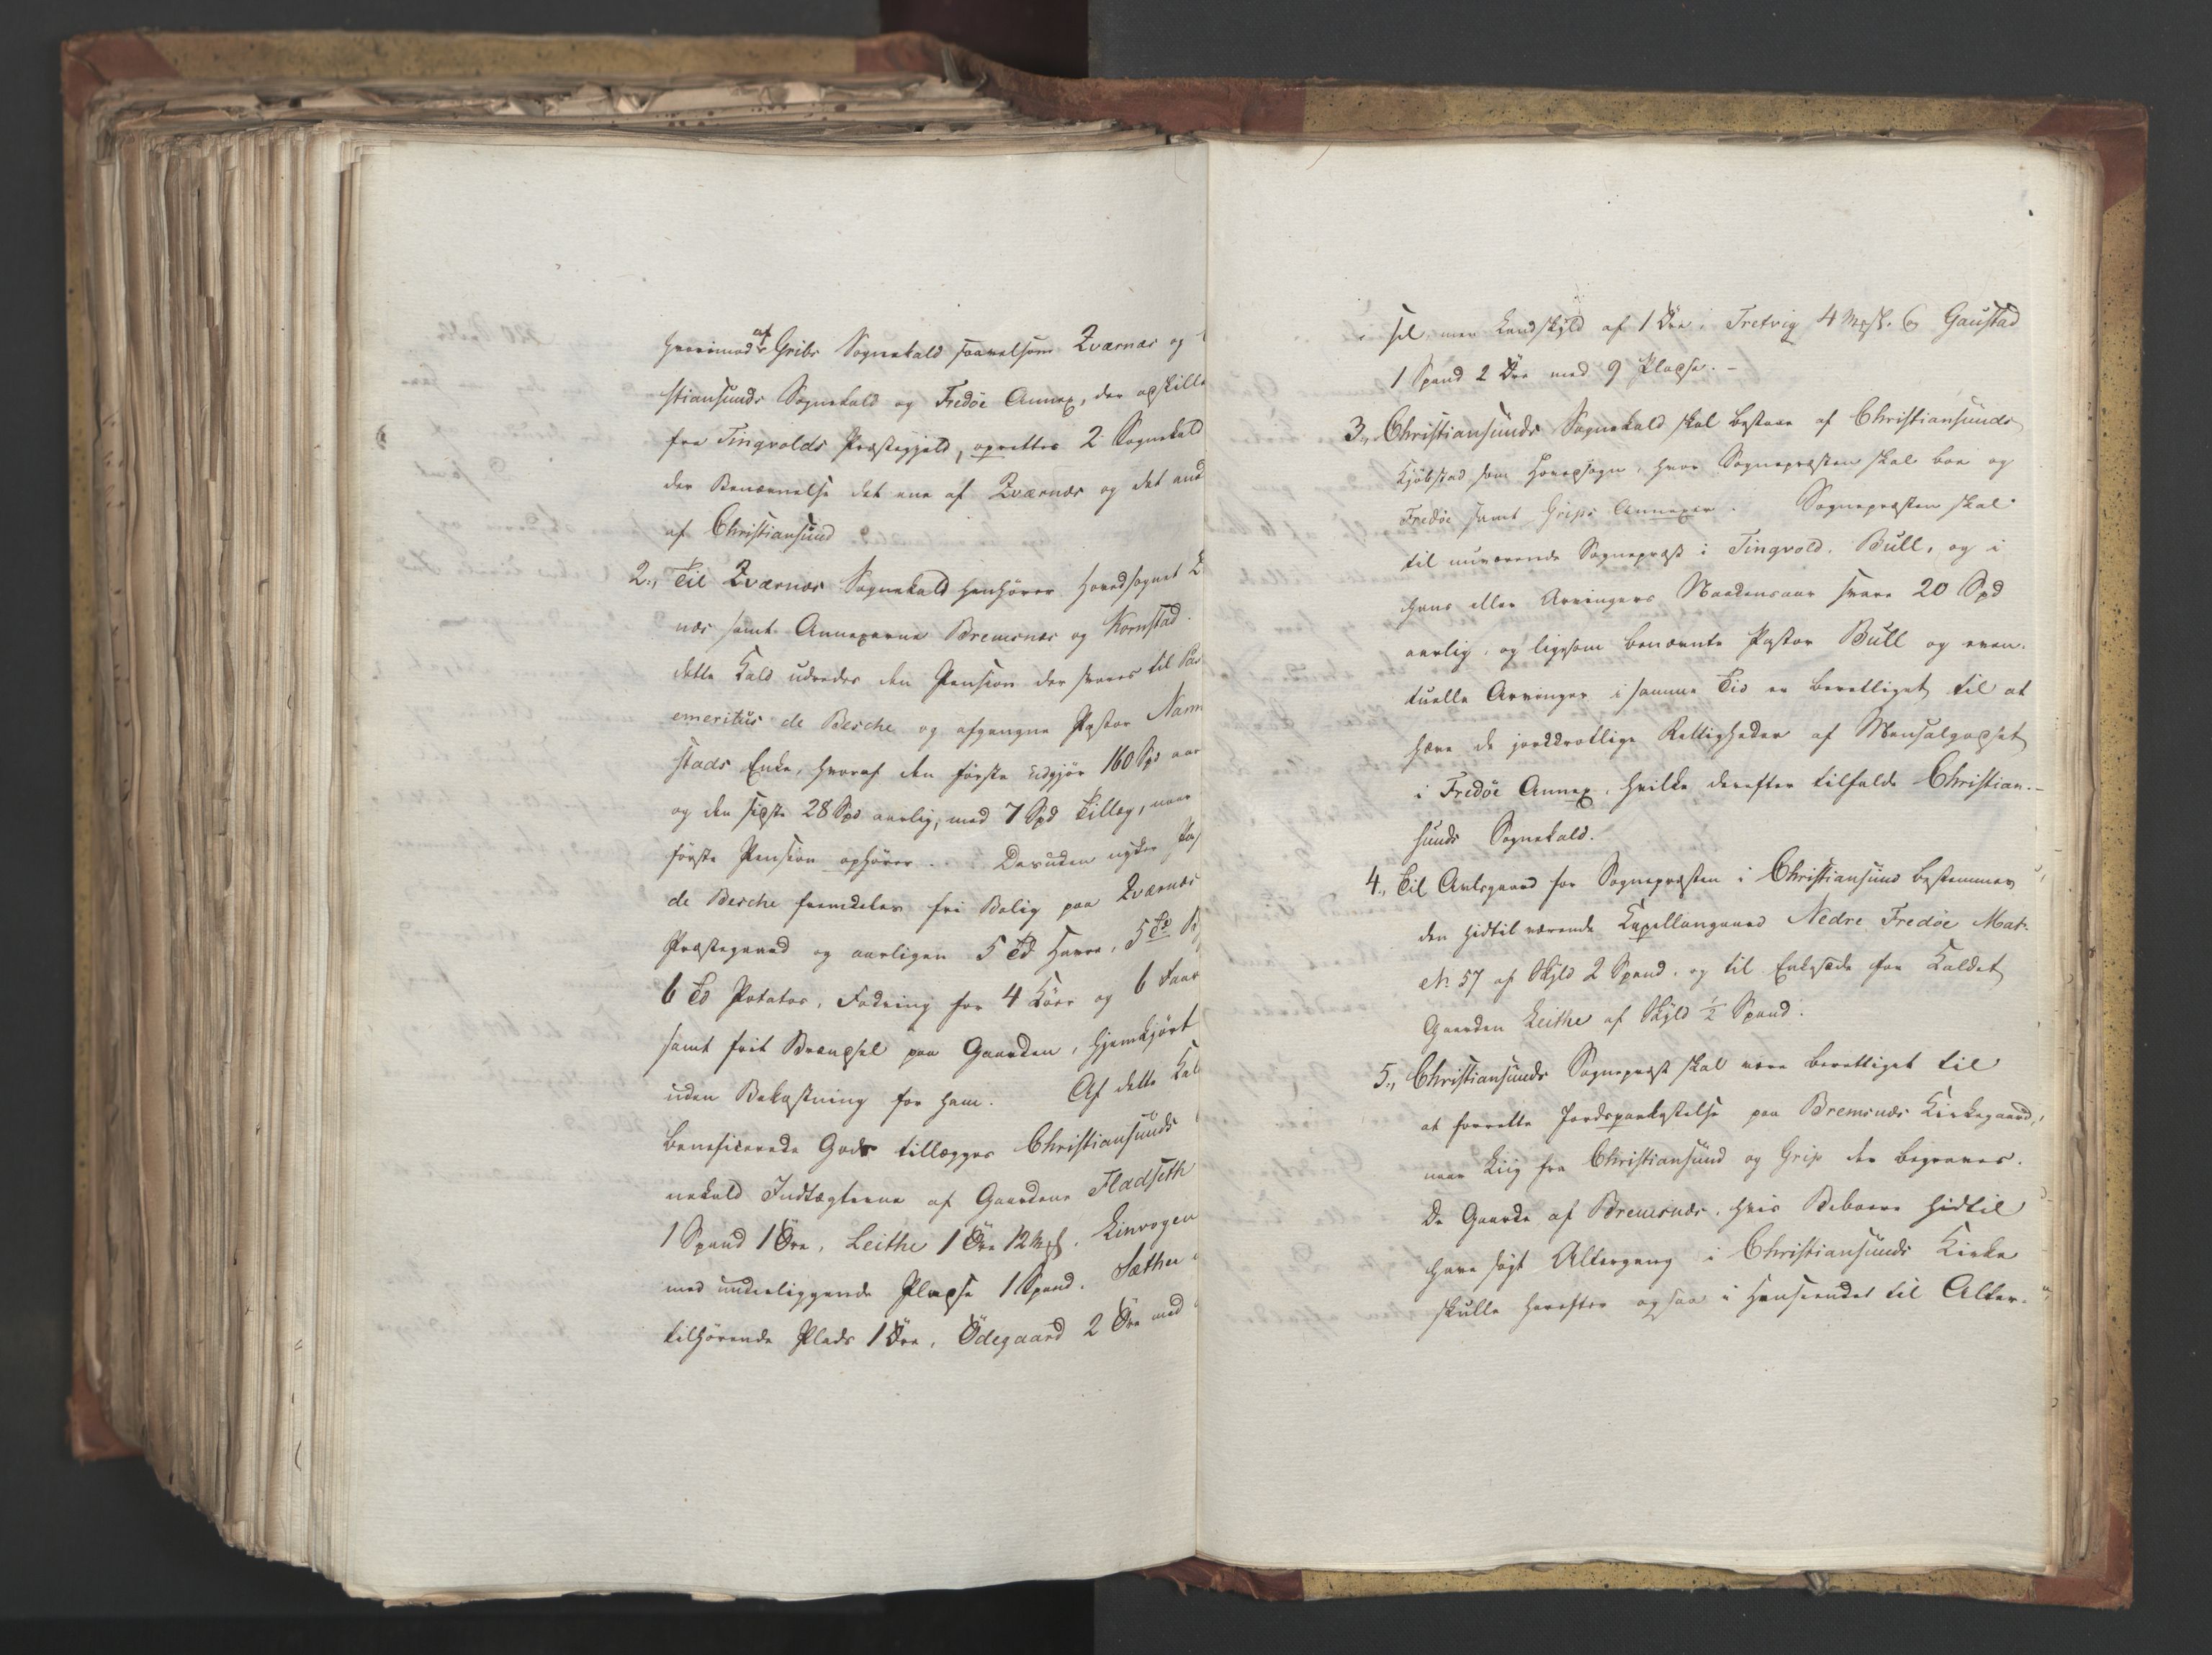 hvorimod af Gribs Sognekald saavelsom Qværnæs og
stiansunds Sognekald og Fredöe Annex, der adskilles
fra Tingvolds Præstegjeld, oprettes 2 Sognekald
der Benævnelse det ene af Qværnæs og det and
af Christiansund
2., Til Qværnæs Sognekald henhörer Hovedsognet Q
næs samt Annexerne Bremsnæs og Kornstad.
dette Kald udredes den Pension der svares til Pas
emeritus de Besche og afgangne Pastor Nann
stads Enke, hvoraf den förste udgjör 160 Spd aar
og den sidste 28 Spd aarlig, med 7 Spd Tillæg, naar
förste Pension ophörer. Desuden nyder Pas
de Besche fremdeles fri Bolig paa Qværnæs
Præstegaard og aarligen 5 Td Havre, 5 Td B
6 Td Potatos, Fodring for 4 Köer og 6 Faar
samt frit Brændsel paa Gaarden, hjemkjört
uden Bekostning for ham. Af dette Kal
beneficerede Gods tillægges Christiansunds
nekald Indtægterne af Gaardene Fladseth
1 Spand 1 Öre, Leithe 1 Öre 12 Mrkl. Linvogen
med underliggende Pladse 1 Spand. Sæther
tilhörende Plads 1 Öre, Ödegaard 2 Öre med
sel men Landskyld af 1 Öre, Tretvig 4 Mrkl. og Gaustad
1 Spand 2 Öre med 9 Pladse. -
3., Christiansunds Sognekald skal bestaae af Christiansunds
Kjöbstad som Hovedsogn, hvor Sognepræsten skal boe og
Fredöe samt Grips Annexer. Sognepræsten skal
til nuværende Sognepræst i Tingvold, Bull, og i
hans eller Arvingers Naadensaar svare 20 Spd
aarlig, og ligesom benævnte Pastor Bull og even-
tuelle Arvinger i samme Tid er berettiget til at
hæve de jorddrotlige Rettigheder af Mensalgodset
i Fredöe Annex, hvilke derefter tilfalde Christian-
sunds Sognekald.
4., Til Avlsgaard for Sognepræsten i Christiansund bestemmes
den hidtil værende Kapellangaard Nedre Fredöe Mat.
No 57 af Skyld 2 Spand, og til Enkesæde for Kaldet
Gaarden Leithe af Skyld 1/2 Spand.
5., Christiansunds Sognepræst skal være berettiget til
at forrette Jordspaakastelse paa Bremsnæs Kirkegaard,
naar Liig fra Christiansund og Grip der begraves.
De Gaarde af Bremsnæs, hvis Beboere hidtil
have sögt Altergang i Christiansunds Kirke
skulle herefter ogsaa i Henseende til Alter-